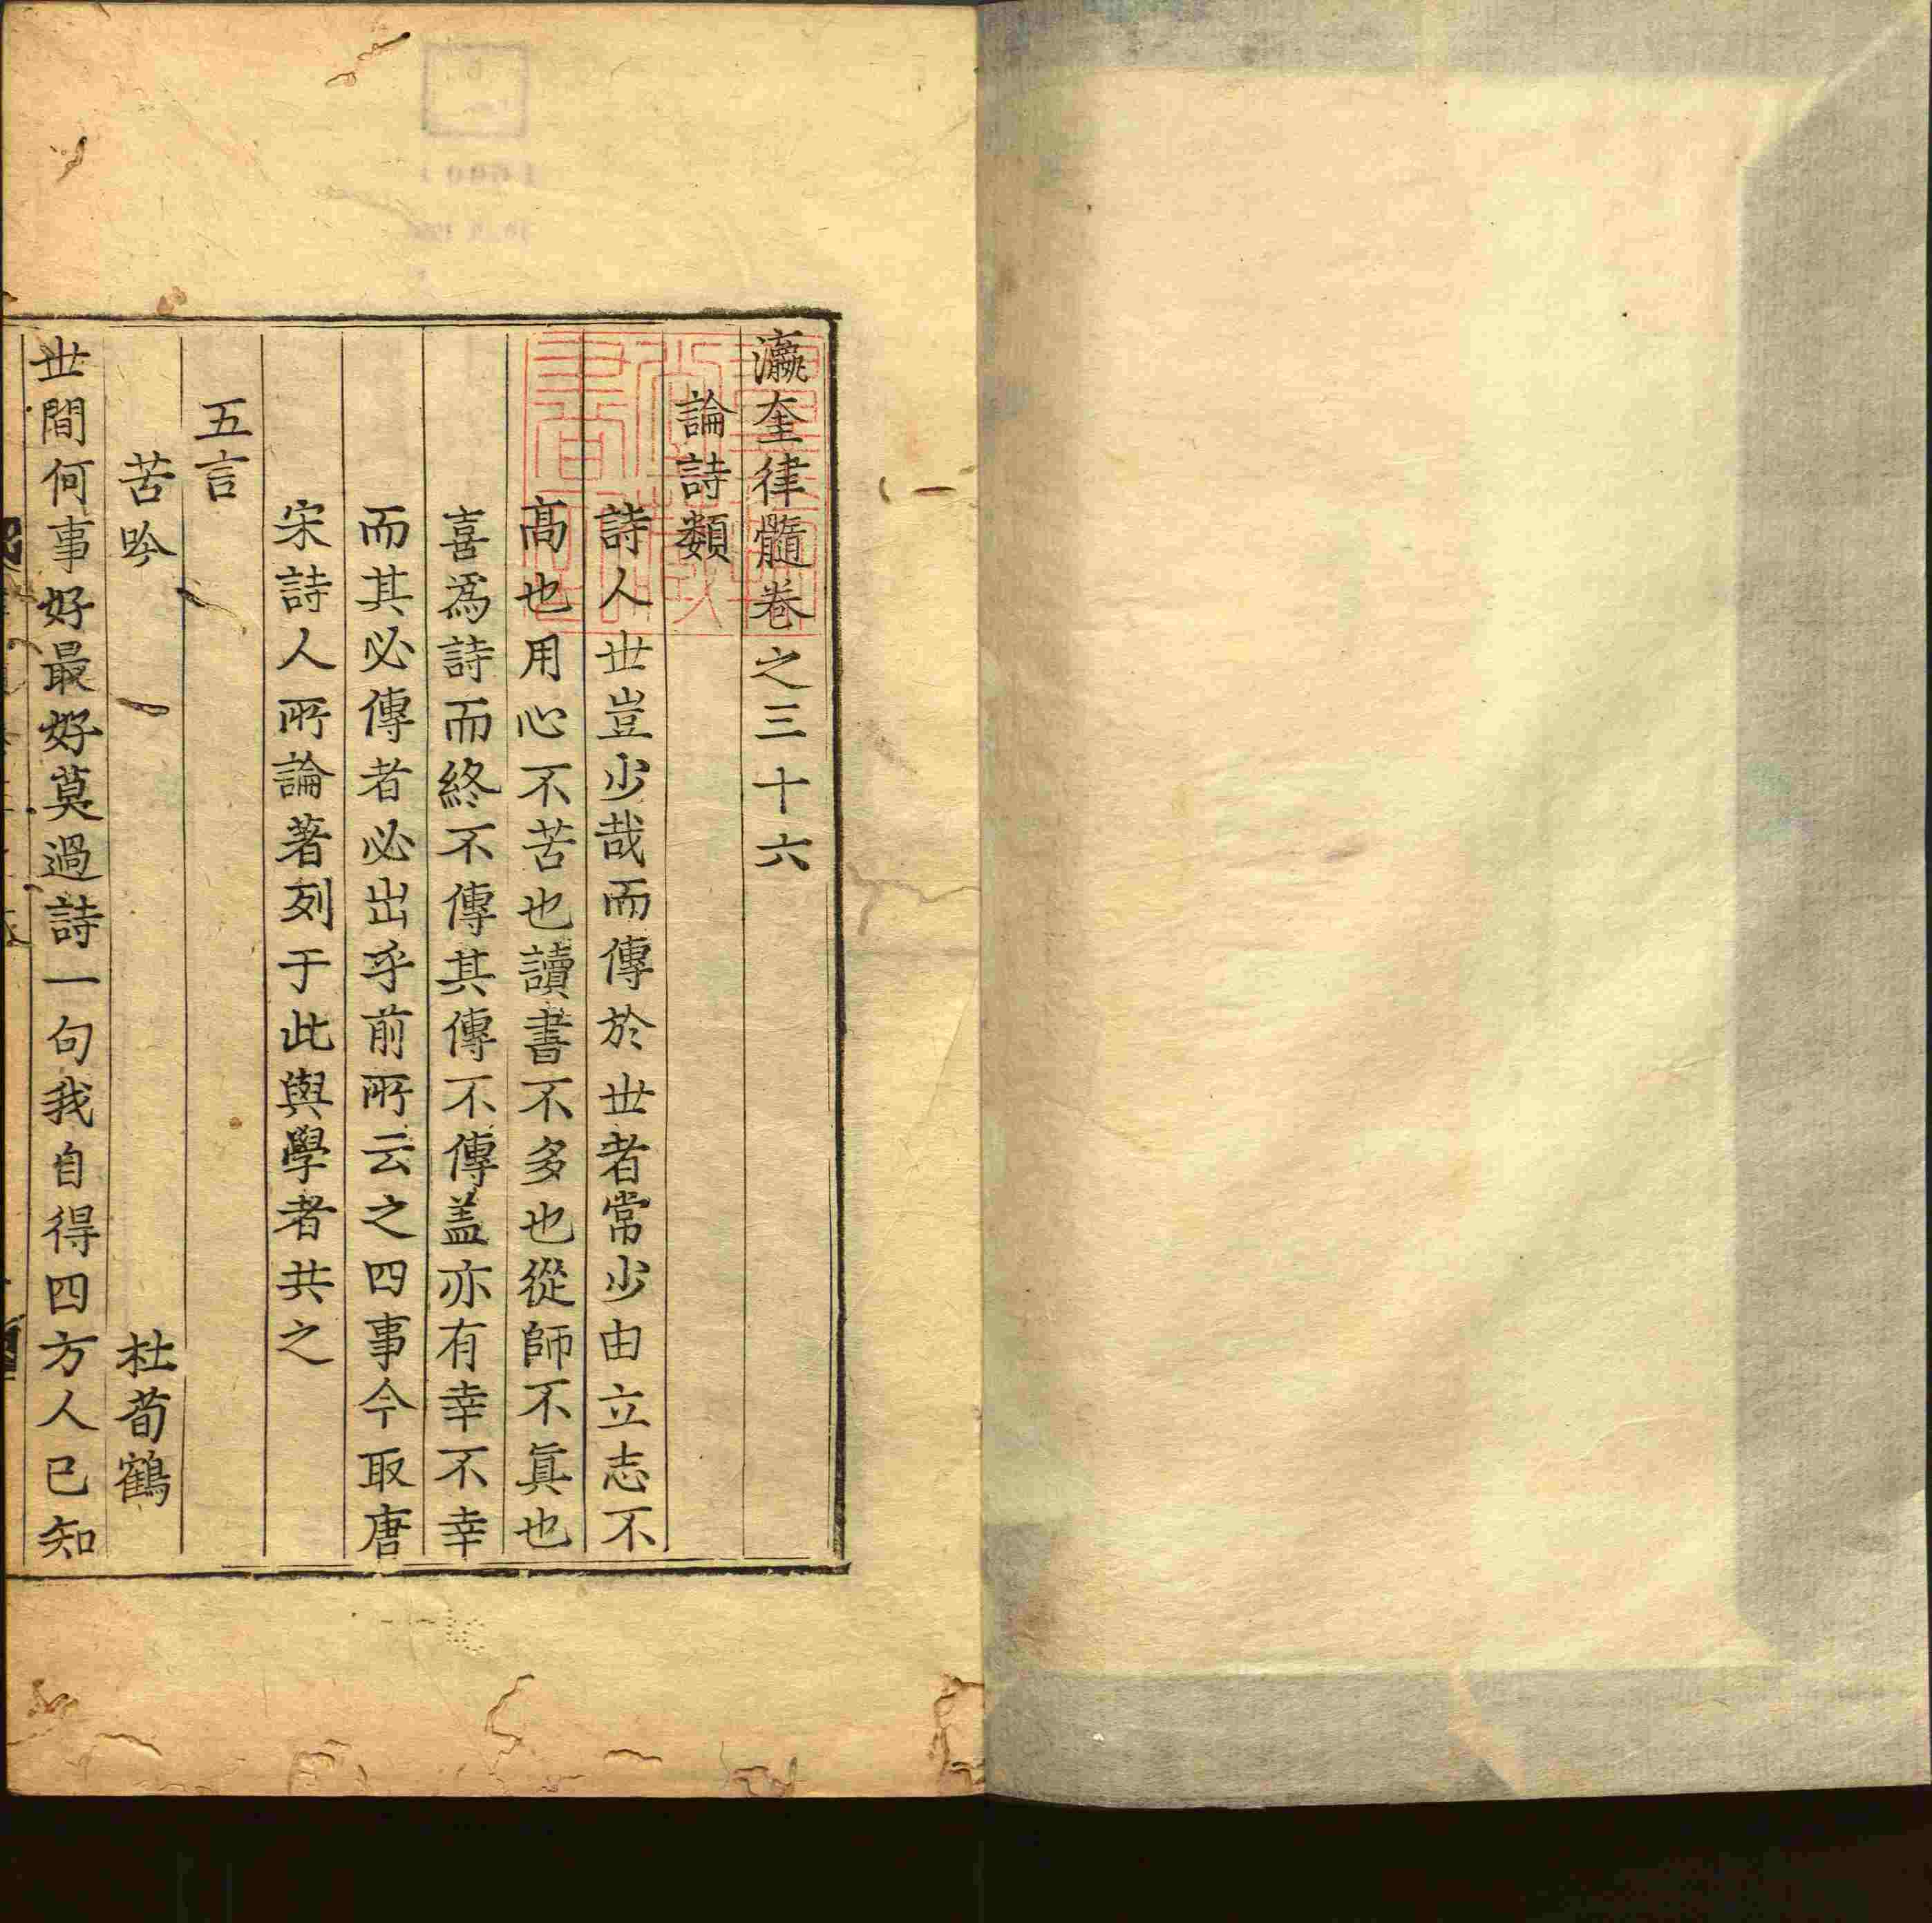 瀛奎律髓卷之三十六
論詩類
詩人世豈少哉而傳於世者常少由立志不
高也用心不苦也讀書不多也從師不眞也
喜爲詩而終不傳其傳不傳盖亦有幸不幸
而其必傳者必出乎前所云之四事今取唐
宋詩人所論著列于此與學者共之
五言
苦吟 杜荀鶴
世間何事好最好莫過詩一句我自得四方人已知